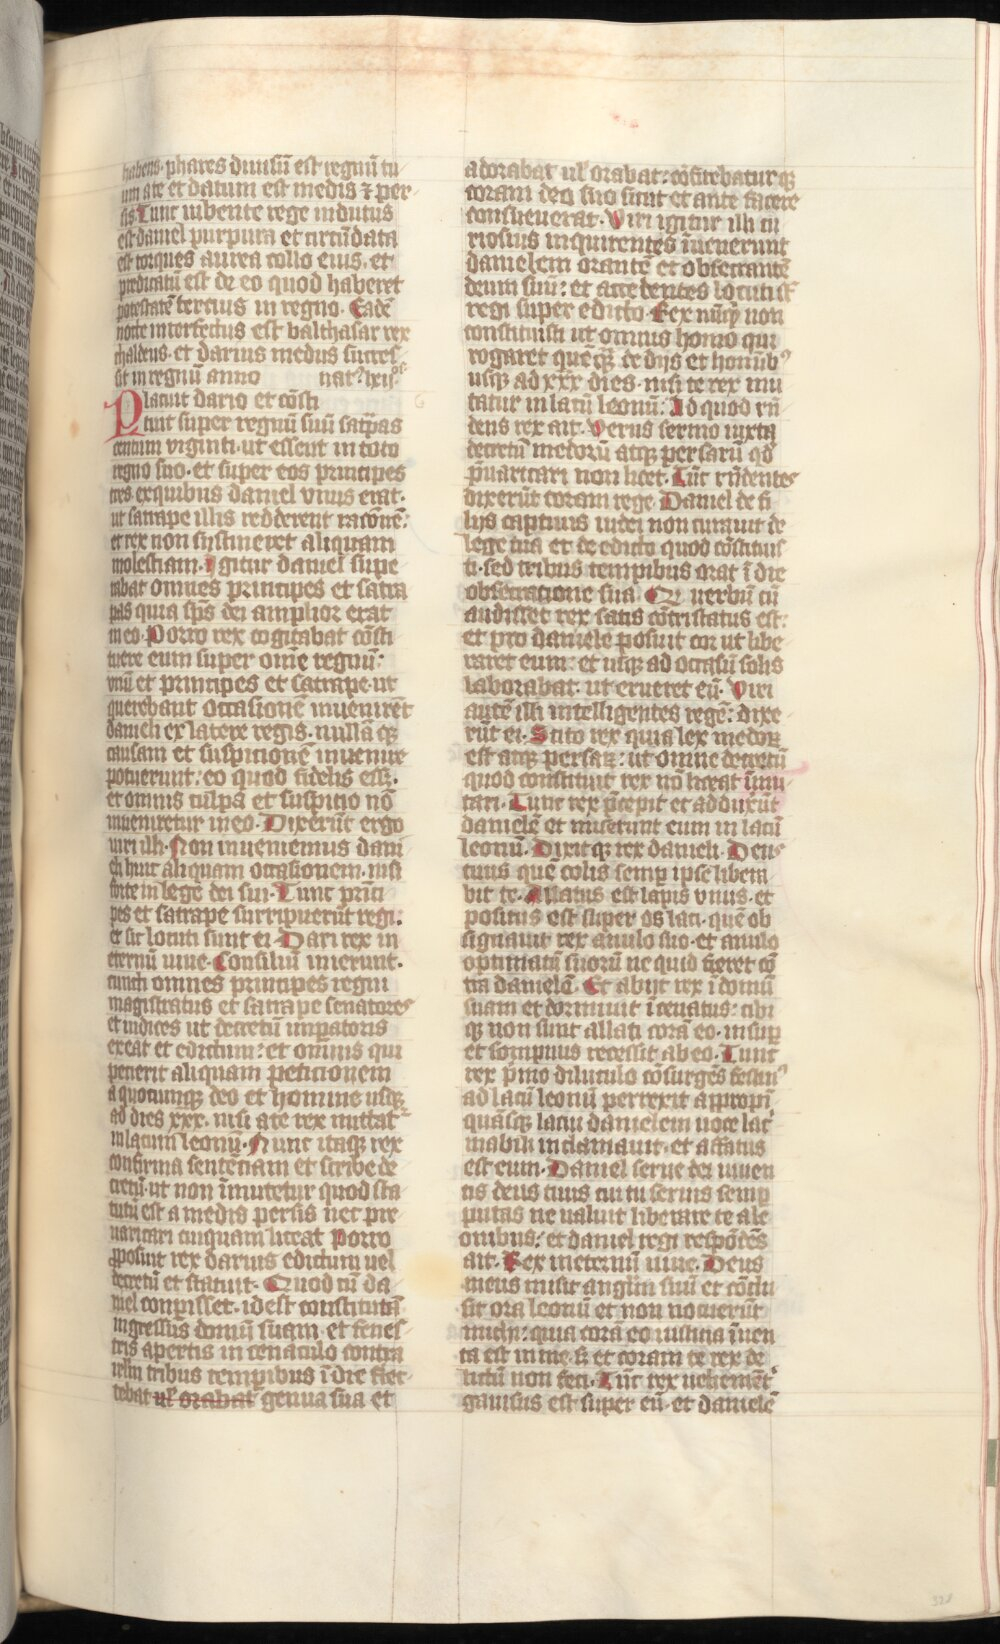 habens· phares diuisū est regnū tu
um a te et datum est medis ⁊ per
sis Tunc iubente rege indutus
est daniel purpura et circūdata
est torques aurea collo eius· et
predicatū est de eo quod haberet
potestatē tercius in regno· Eadē
nocte interfectus est balthasar rex
chaldeus· et darius medus succes
sit in regnū anno natꝰ lxijꝰ
Placuit dario et cōsti
tuit super regnū suū sat͛pas
centum viginti· ut essent in toto
regno suo· et super eos principes
tres ex quibus daniel vnus erat·
ut satrape illis redderent racōnē:
et rex non sustineret aliquam
molestiam· Igitur daniel supe
rabat omnes principes et satra
pas quia sp̄s dei amplior erat
in eo· Porro rex cogitabat cōsti
tuere eum super om̄e regnū:
vnū et principes et satrape· ut
querebant occasionē inuenirēt
danieli ex latere regis· nullā qꝫ
causam et suspicionē inuenire
potuerunt: eo quod fidelis essꝫ·
et omnis culpa et suspicio nō
inueniretur in eo· Dixerūt ergo
viri illi· Non inueniemus dani
eli huic aliquam occasionem· nisi
forte in lege dei sui· Tunc prīci
pes et satrape surripuerūt regi:
et sic locuti sunt ei· Dari rex in
eternū viue· Consiliū inierunt·
cuncti omnes principes regni
magistratus et satrape senatores
et iudices ut decretū imp̄atoris
exeat et edictum: et omnis qui
petierit aliquam peticionem
a quocunqꝫ deo et homine usqꝫ
ad dies xxx· nisi a te rex mittat᷑
in lacum leonū· Nunc itaqꝫ rex
confirma sentēciam et scribe de
cretū· ut non īmutetur quod sta
tutū est a medis persis nec pre
uaricari cuiquam liceat Porro
ꝓposuit rex darius edictum uel
decretū et statuit· Quod cū da
niel conpisset· id est constitutā
ingressus domū suam· et fenes
tris apertis in cenaculo contra
irl̄m tribus tempibus ī die flec
tebat ul̓ orabat genua sua et
adorabat ul̓ orabat: cōfitebatur qꝫ
coram deo suo sicut et ante facere
consueuerat· Viri igitur illi cu
riosius inquirentes īuenerunt
danielem orantē et obsecrantē
deum suū: et accedentes locuti st̄
regi super edicto· Rex nūqͥd non
constituisti ut omnis homo qui
rogaret queqꝫ de dijs et hominibꝰ
usqꝫ ad xxx dies· nisi te rex mit
tatur in lacū leonū: Ad quod rn̄
dens rex ait· Verus sermo iuxta
decretū medorū atqꝫ persarū qd̄
p̄uaricari non licet· Tūc rn̄dentes
dixerūt coram rege· Daniel de fi
lijs captiuis iudei non curauit de
lege tua et de edicto quod cōstituis
ti· sed tribus tempibus orat ī die
obsecratione sua· Qd̄ uerbū cū
audisset rex satis cōtristatus est:
et pro daniele posuit cor ut libe
raret eum: et usqꝫ ad occasū solis
laborabat· ut erueret eū· Viri
autē illi intelligentes regē: dixe
rūt ei· Scito rex quia lex medoꝝ
est atqꝫ persaꝝ: ut omne decretū
quod constituit rex nō liceat īmu
tari· Tunc rex p̄cepit et adduxer̄t
danielē et miserunt eum in lacū
leonū· Dixit qꝫ rex danieli· Deus
tuus quē colis semp ipse libera
bit te· Allatus est lapis vnus· et
positus est super os laci· quē ob
signauit rex anulo suo· et anulo
optimatū suorū ne quid fieret cō
tra danielē· Et abijt rex ī domū
suam et dormiuit īcenatus: cibi
qꝫ non sunt allati corā eo· insup
et sompnus recessit ab eo· Tunc
rex p̄mo diluculo cōsurgēs festinꝰ
ad lacū leonū perrexit appropī
quāsqꝫ lacu danielem uoce lac͛
mabili inclamauit· et affatus
est eum· Daniel serue dei viuen
tis deus tuus cui tu seruis semp
putas ne ualuit liberare te a le
onibus: et daniel regi respōdēs
ait· Rex in eternū viue· Deus
meus misit anglm̄ suū et cōclu
sit ora leonū et non nocuerūt
michi: quia corā eo iusticia īuen
ta est in me· sꝫ et coram te rex de
lictū non feci· Tūc rex uehement͛
gauisus est super eū· et danielē
328